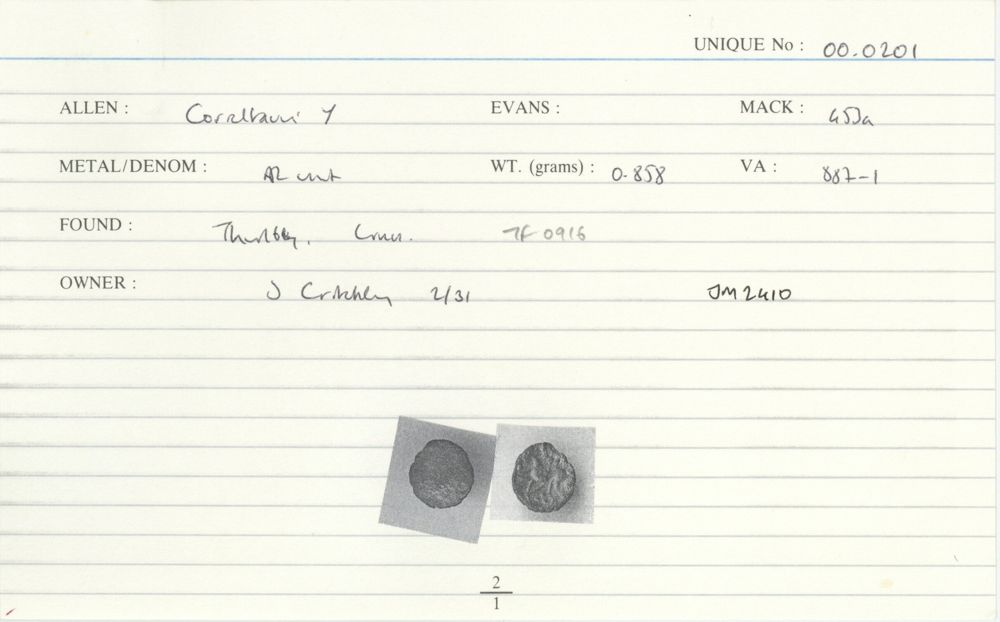 UNIQUE No : 00.0201
ALLEN : Corieltauvi Y EVANS : MACK : 453a
METAL/DENOM : AR unit WT. (grams) : 0.858 VA : 887-1
FOUND : Thurlby, Lincs. TF 0916
OWNER : J Critchley 2/31 JM 2410
2
1